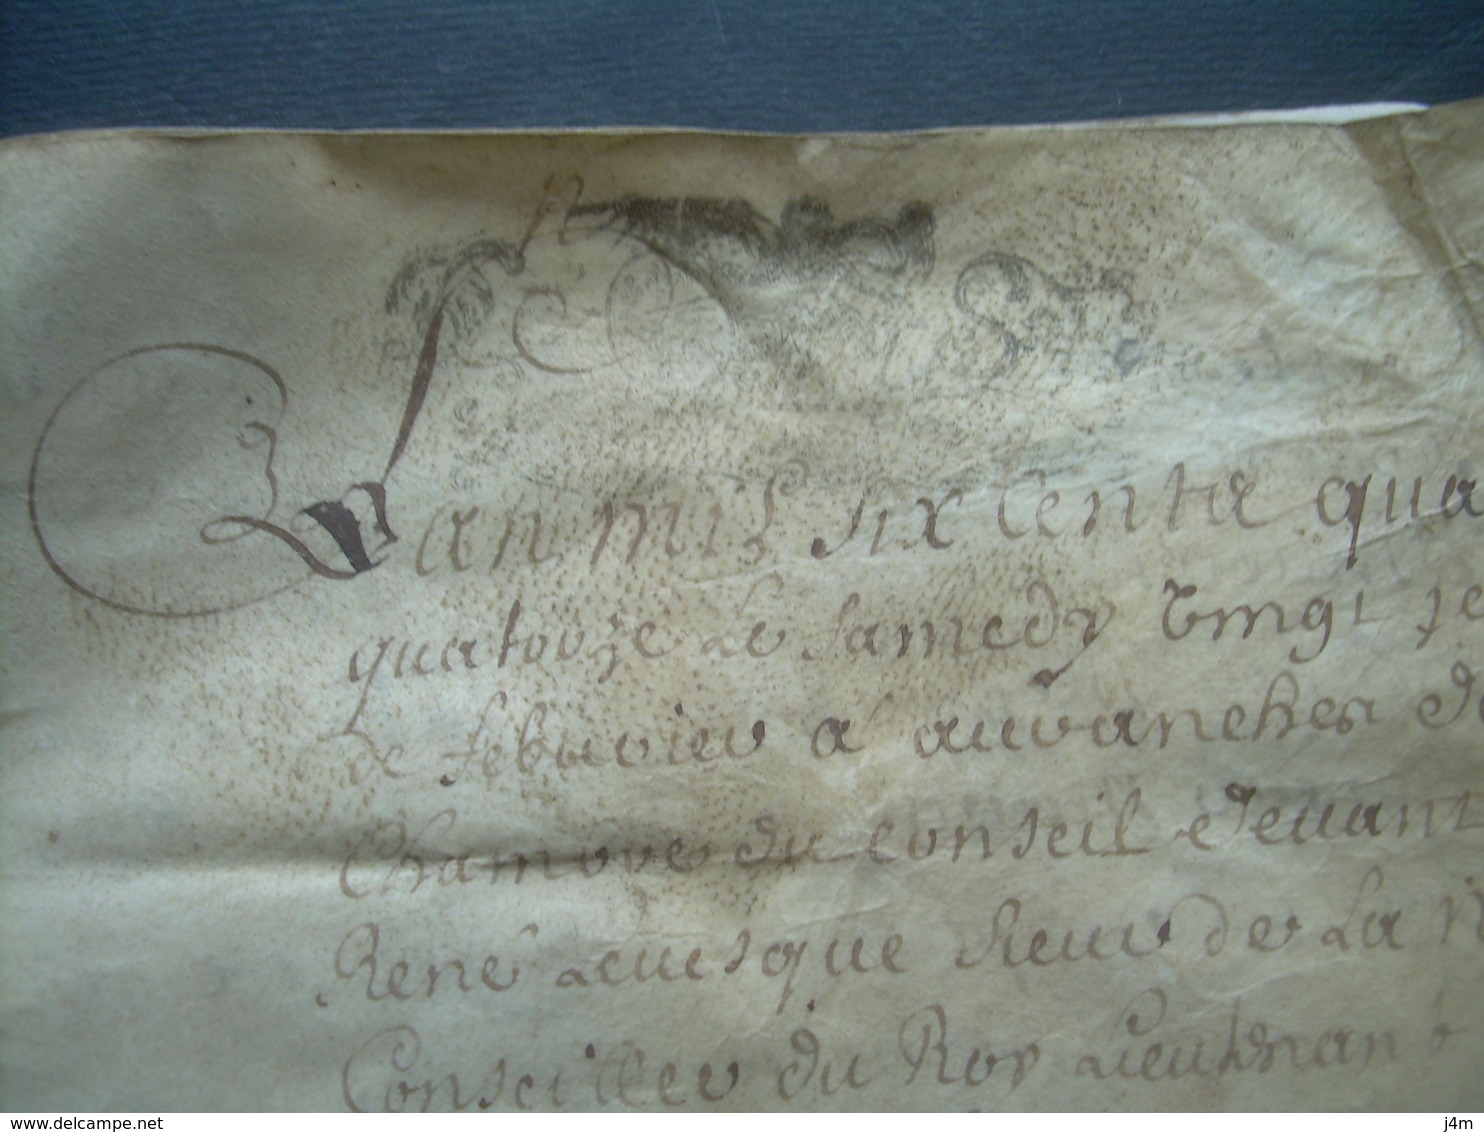 L an mil six cents qua
quatorze Le Samedy Vingt se
de febvrier a auvranches d
Chambre du conseil devant
René Levesque sieur de La
Conseiller du Roy Lieutenant
www.delcampe.net
j4m